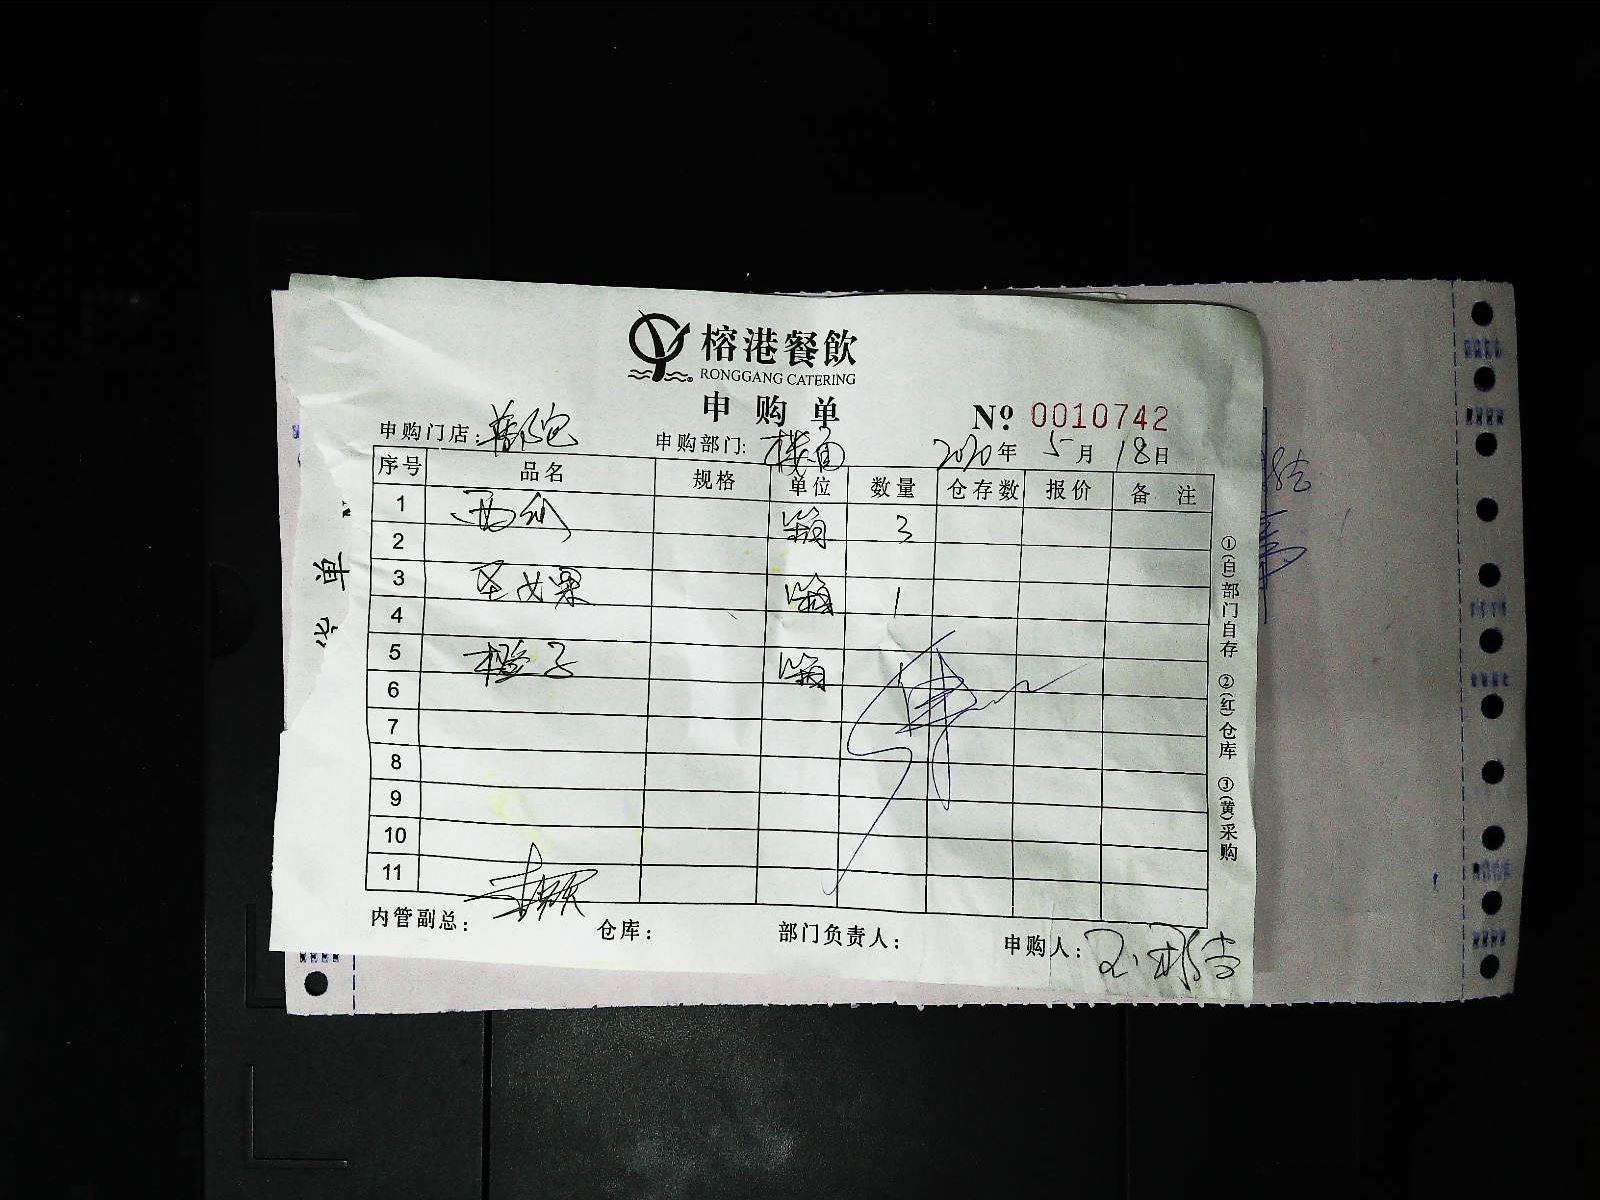 榕港餐飲
RONGGANG CATERING
申购单
№ 0010742
申购门店: 申购部门: 楼面 2020年 5月 18日
序号 品名 规格 单位 数量 仓存数 报价 备注
1 西瓜 箱 3
2
3 圣女果 箱 1
4
5 橙子 箱 1
6
7
8
9
10
11
内管副总: 仓库: 部门负责人: 申购人:
①(白)部门自存 ②(红)仓库 ③(黄)采购
单